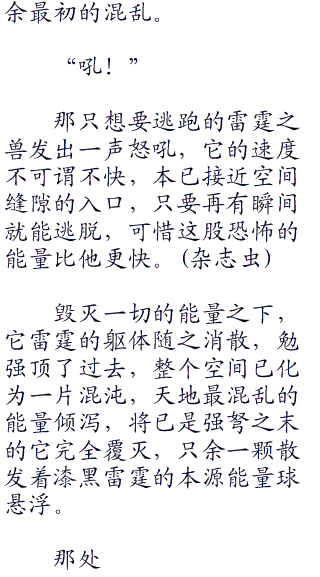 余最初的混乱。
“吼！”
那只想要逃跑的雷霆之
兽发出一声怒吼，它的速度
不可谓不快，本已接近空间
缝隙的入口，只要再有瞬间
就能逃脱，可惜这股恐怖的
能量比他更快。(杂志虫)
毁灭一切的能量之下，
它雷霆的躯体随之消散，勉
强顶了过去，整个空间已化
为一片混沌，天地最混乱的
能量倾泻，将已是强弩之末
的它完全覆灭，只余一颗散
发着漆黑雷霆的本源能量球
悬浮。
那处